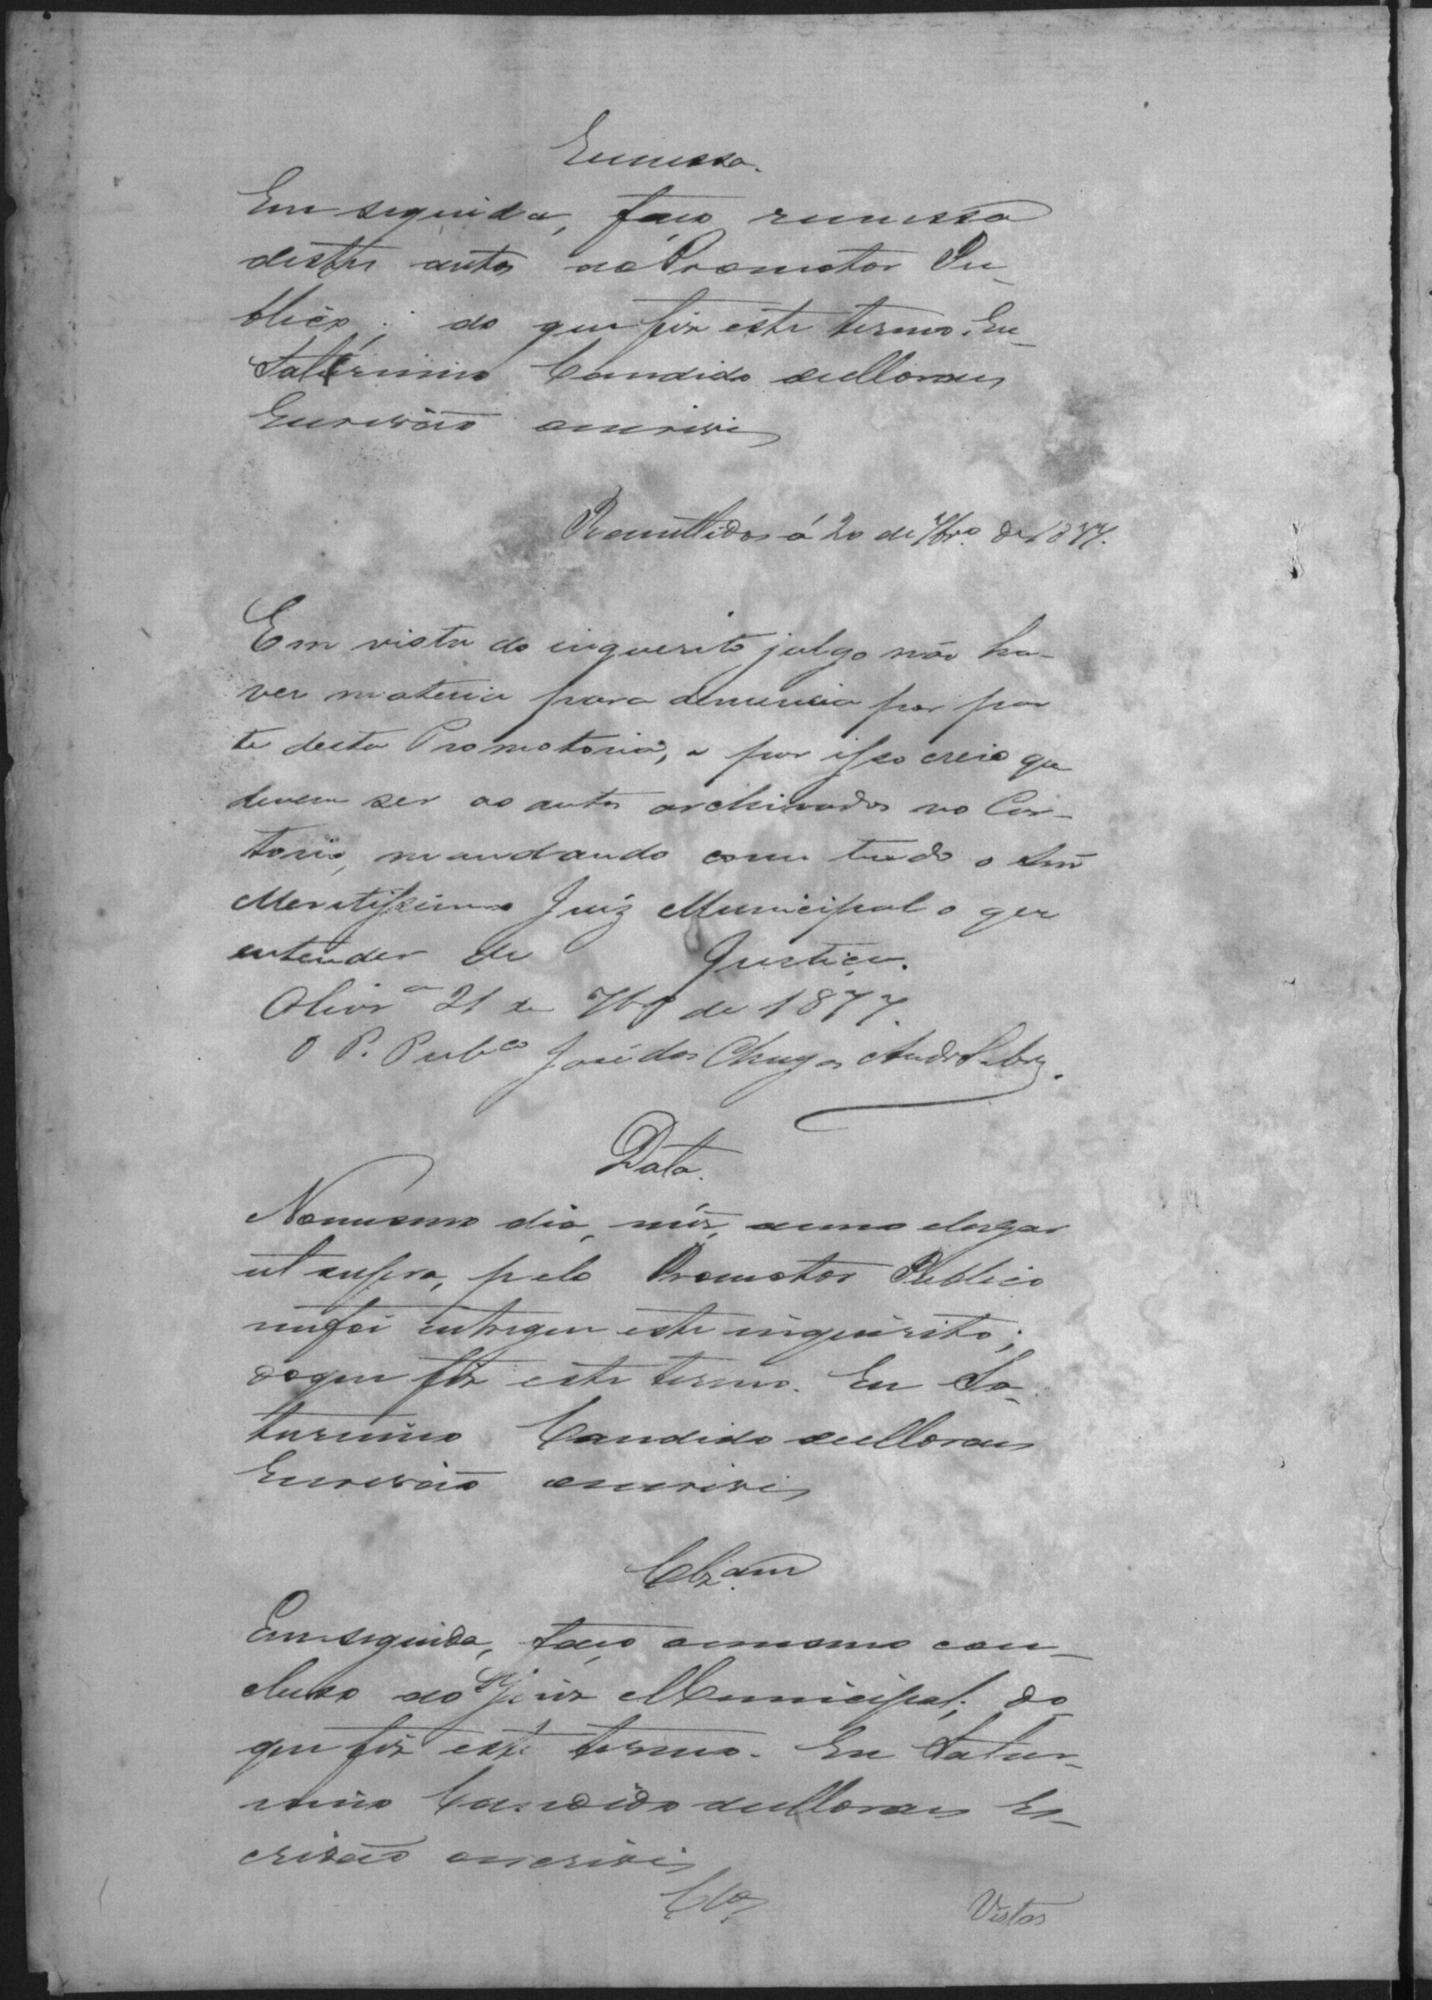 Remessa.
Em seguida, faço remessa
destes autos ao Promotor Pu-
blico; do que fiz este termo. Eu
Saturnino Candido de Moraes
Escrivão o escrivi
Remettidos á 20 de 7bro. de 1877.
Em vista do inquerito julgo não ha-
ver materia para denuncia por par
te desta Promotoria, e por isso creio que
devem ser os autos archivados no Car-
torio, mandando com tudo o Snr
Meretissimo Juiz Municipal o que
entender de Justiça.
Olivra 21 de 7bro de 1877.
O P. Pubco José das Chagas
Data.
No mesmo dia, mêz, anno e lugar
ut supra, pelo Promotor Publico
me foi entregue este inquerito;
do que fiz este termo. Eu Sa-
turnino Candido de Moraes
Escrivão o escrivi
Clzam
Em seguida, faço o mesmo con-
cluso ao Juiz Municipal; do
que fiz este termo. Eu Satur-
nino Candido de Moraes Es-
crivão o escrivi
Clos
Vistos